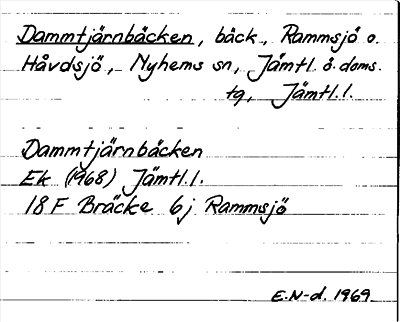 Dammtjärnbäcken, bäck, Rammsjö o.
Håvdsjö, Nyhems sn, Jämtl. ö. doms.
tg, Jämtl. l.
Dammtjärnbäcken
Ek (1968) Jämtl. l.
18 F Bräcke 6j Rammsjö
E.N-d. 1969.